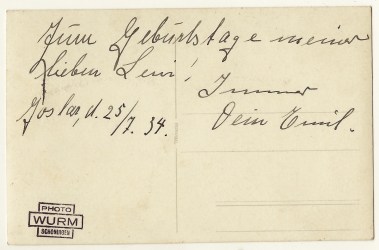 Zum Geburtstage meiner
lieben Leni!
Immer
Dein Emil.
Goslar, d. 25/7. 34.
PHOTO
WURM
SCHÖNINGEN